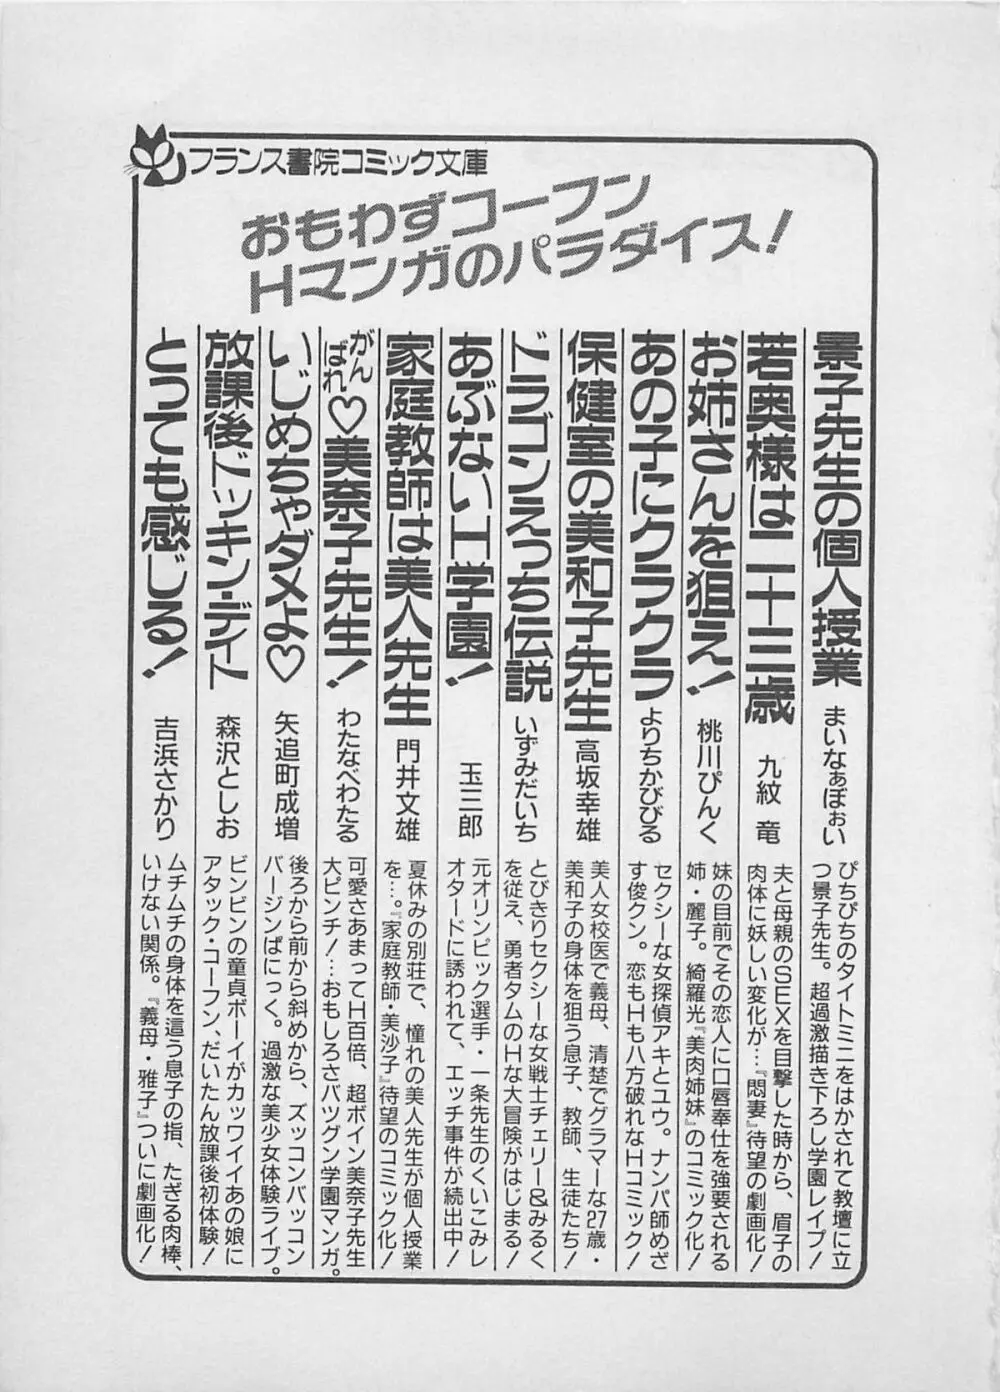 フランス書院コミック文庫
おもわずコーフン
Hマンガのパラダイス!
景子先生の個人授業
まいなぁぼぉい
ぴちぴちのタイトミニをはかされて教壇に立
つ景子先生。超過激描き下ろし学園レイプ!
若奥様は二十三歳
九紋 竜
夫と母親のSEXを目撃した時から、眉子の
肉体に妖しい変化が…『悶妻』待望の劇画化!
お姉さんを狙え!
桃川ぴんく
妹の目前でその恋人に口唇奉仕を強要される
姉・麗子。綺羅光『美肉姉妹』のコミック化!
あの子にクラクラ
よりちかびびる
セクシーな女探偵アキとユウ。ナンパ師めざ
す俊クン。恋もHも八方破れなHコミック!
保健室の美和子先生
高坂幸雄
美人女校医で義母、清楚でグラマーな27歳・
美和子の身体を狙う息子、教師、生徒たち!
ドラゴンえっち伝説
いずみだいち
とびきりセクシーな女戦士チェリー&みるく
を従え、勇者タムのHな大冒険がはじまる!
あぶないH学園!
玉三郎
元オリンピック選手・一条先生のくいこみレ
オタードに誘われて、エッチ事件が続出中!
家庭教師は美人先生
門井文雄
夏休みの別荘で、憧れの美人先生が個人授業
を…。『家庭教師・美沙子』待望のコミック化!
がんばれ♡美奈子先生!
わたなべわたる
可愛さあまってH百倍、超ボイン美奈子先生
大ピンチ!…おもしろさバツグン学園マンガ。
いじめちゃダメよ♡
矢追町成増
後ろから前から斜めから、ズッコンバッコン
バージンぱにっく。過激な美少女体験ライブ。
放課後ドッキン・デイト
森沢としお
ビンビンの童貞ボーイがカッワイイあの娘に
アタック・コーフン、だいたん放課後初体験!
とっても感じる!
吉浜さかり
ムチムチの身体を這う息子の指、たぎる肉棒、
いけない関係。『義母・雅子』ついに劇画化!